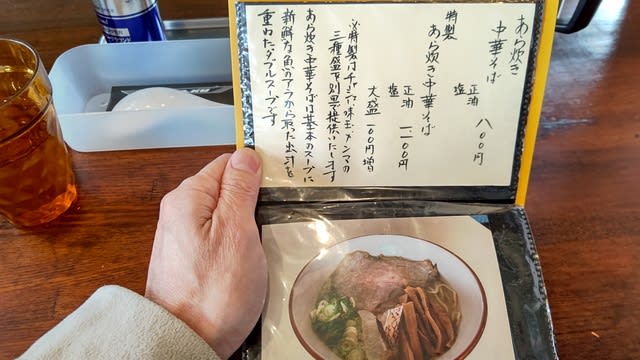 あら炊き
中華そば
正油 八〇〇円
塩
特製
あら炊き中華そば
正油 一一〇〇円
塩
大盛 一〇〇円増
※特製はチャーシュー、味玉、メンマの
三種盛で別皿で提供いたします
あら炊き中華そばは基本のスープに
新鮮な魚のアラから取った出汁を
重ねたダブルスープです